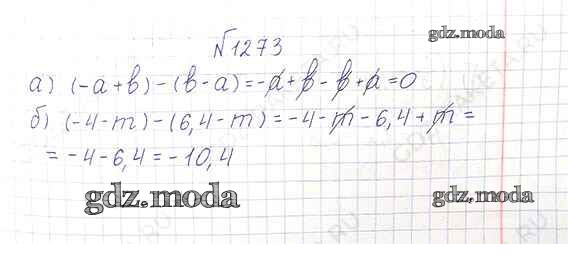 №1273
gdz.moda
а) (-a+b)-(b-a)=-a+b-b+a=0
б) (-4-m)-(6,4-m)=-4-m-6,4+m=
=-4-6,4=-10,4
gdz.moda gdz.moda